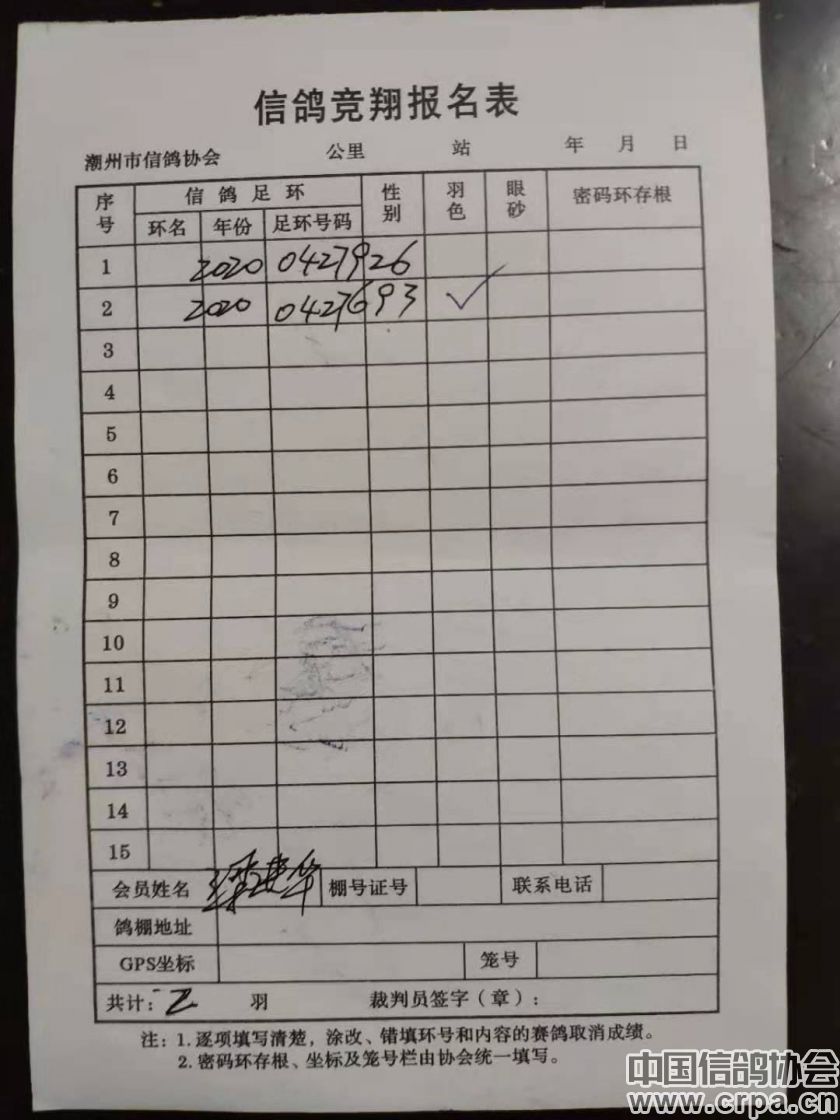 信鸽竞翔报名表
潮州市信鸽协会 公里 站 年 月 日
序号 信鸽足环 性别 羽色 眼砂 密码环存根
环名 年份 足环号码
1 2020 0427926
2 2020 0427693 ✓
3
4
5
6
7
8
9
10
11
12
13
14
15
会员姓名 棚号证号 联系电话
鸽棚地址
GPS坐标 笼号
共计: 2 羽 裁判员签字(章):
注: 1.逐项填写清楚,涂改、错填环号和内容的赛鸽取消成绩。
2.密码环存根、坐标及笼号栏由协会统一填写。
中国信鸽协会
www.crpa.cn